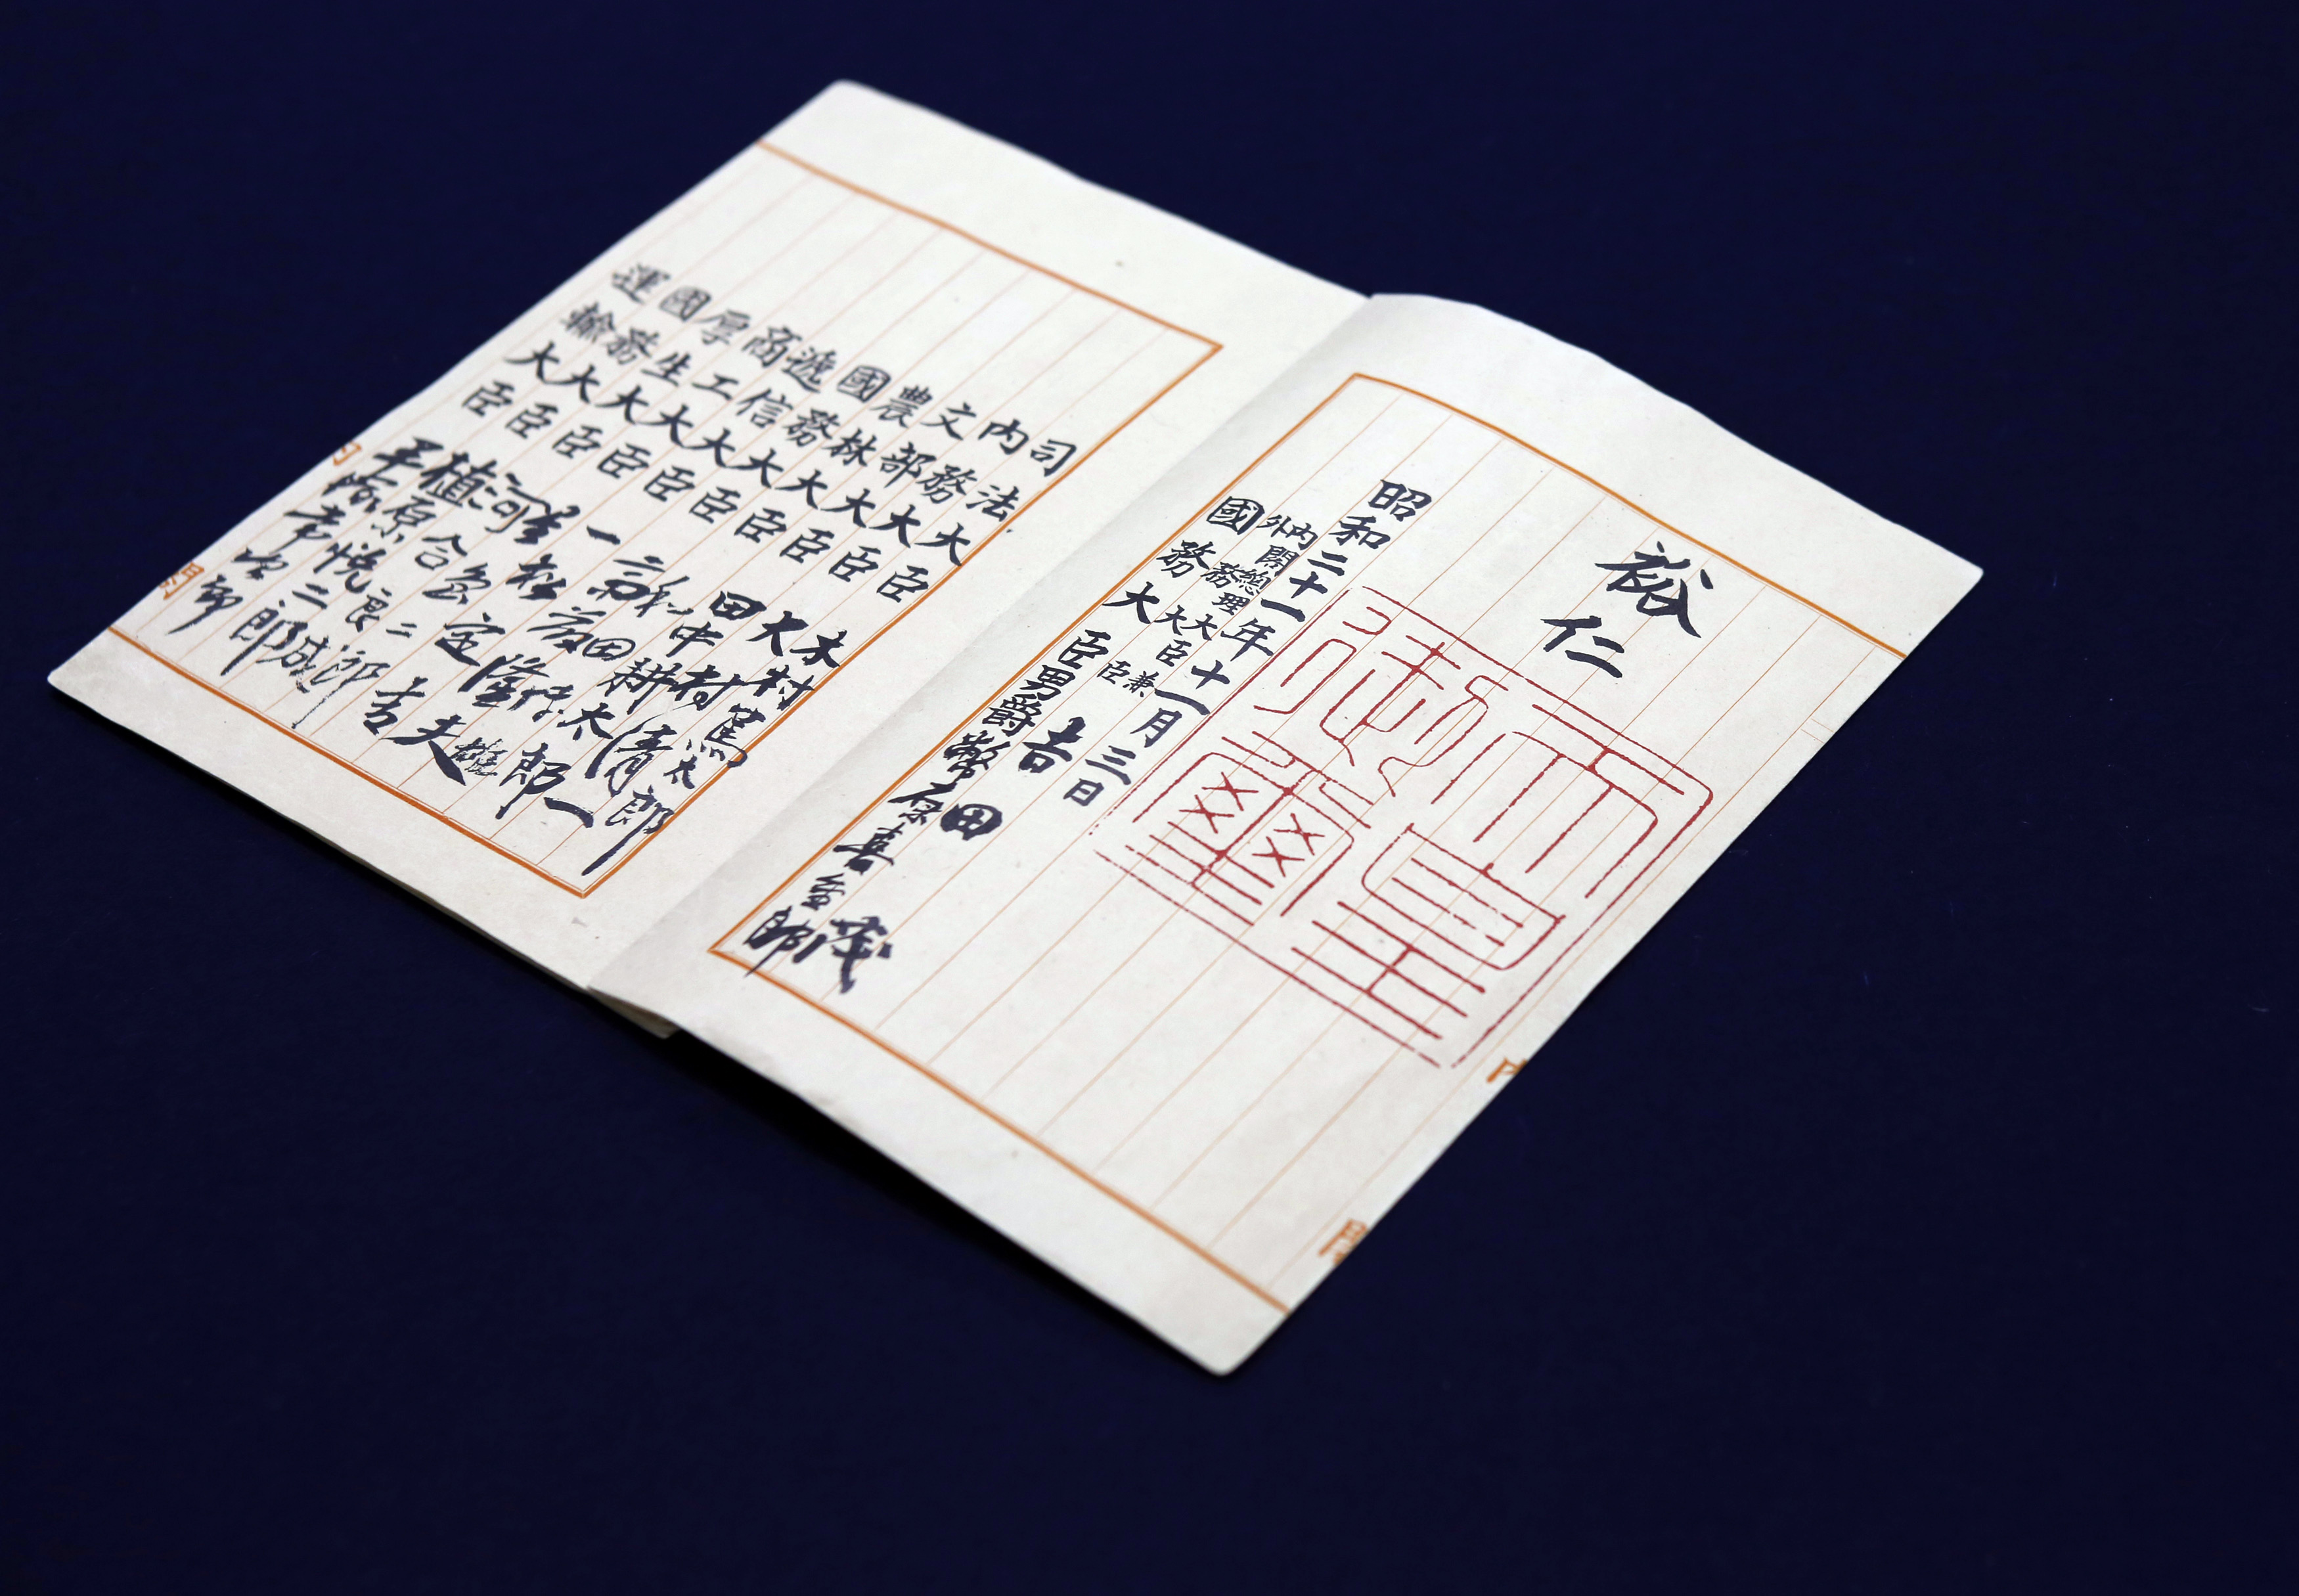 裕仁
天皇御璽
昭和二十一年十一月三日
内閣總理大臣兼
外務大臣
吉田茂
國務大臣男爵幣原喜重郎
司法大臣木村篤太郎
内務大臣大村清一
文部大臣田中耕太郎
農林大臣和田博雄
國務大臣斎藤隆夫
遞信大臣一松定吉
商工大臣星島二郎
厚生大臣河合良成
國務大臣植原悦二郎
運輸大臣平塚常次郎